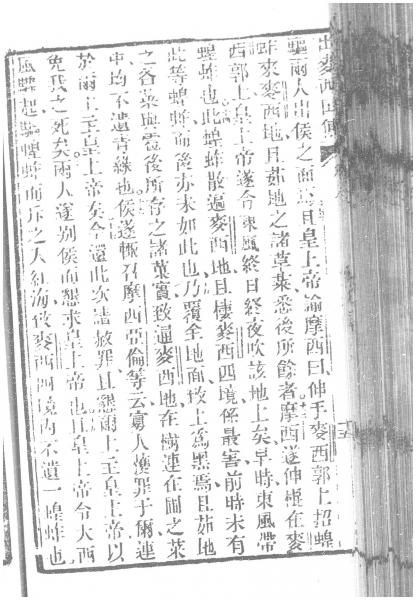 出麥西國傳
驅兩人出侯之面
皇上帝諭摩西曰伸手麥西郭上招蝗
蚱來麥西地且茹地之諸草菜悉後所餘者摩西遂伸棍在麥
西郭上皇上帝遂令東風終日終夜吹該地上矣早時東風帶
蝗蚱也此蝗蚱散遍麥西地且棲麥西四境係最害前時未有
此等蝗蚱而後亦未如此也乃覆全地面致上為黑焉且茹地
之各菜與雹後所存之諸菓實致遍麥西地在樹連在圃之菜
中均不遺青綠也侯遂輙召摩西亞倫等云寡人獲罪于爾連
於爾上主皇上帝矣今還此次請赦罪且懇爾上主皇上帝以
免我之死矣兩人遂別侯而懇求皇上帝也且皇上帝令大西
風蜂起驅蝗蚱而汴之入紅海致麥西四境內不遺一蝗蚱也